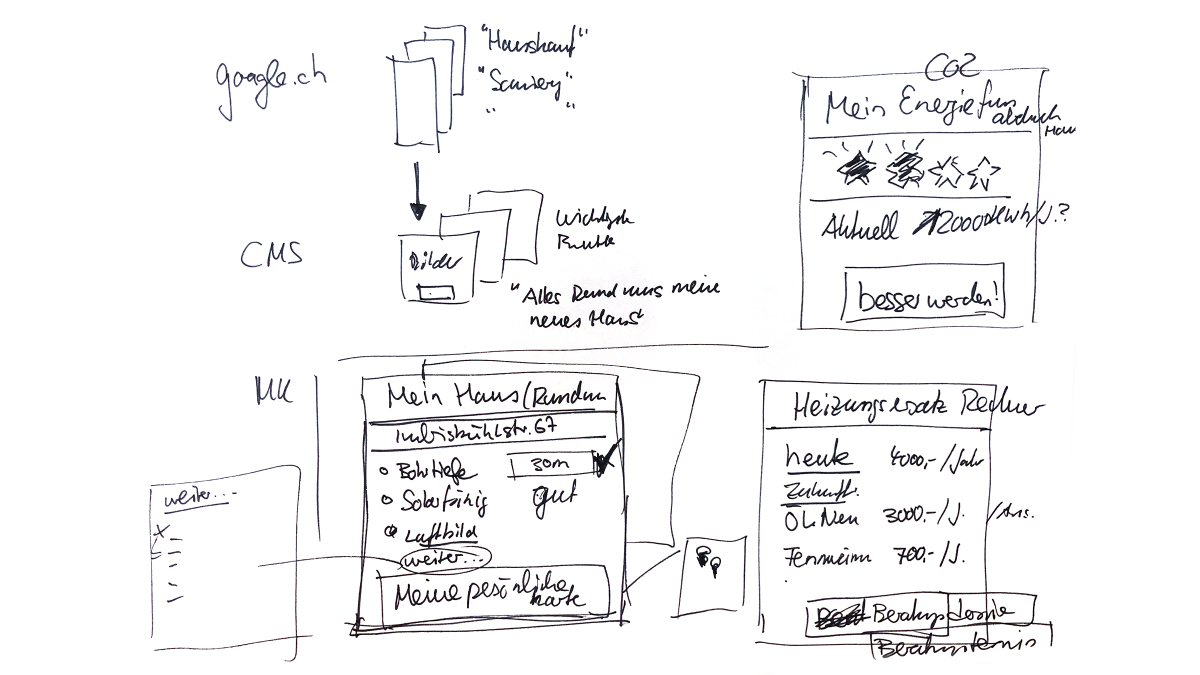 google.ch
"Hauskauf"
"Sanierg"
" "
CMS
Bilder
Wichtigste
Punkte
"Alles Rund ums meine
neues Haus"
CO2
Mein Energiefuss
abdruck
Haus
Aktuell 12000 kWh/J.?
besser werden!
MK
Mein Haus (Rundum
Imbisbühlstr. 67
Bohrtiefe 30m
Solarfähig gut
Luftbild
weiter...
Meine pesönliche
karte
weiter...
Heizungsersatz Rechner
heute 4000.-/Jahr
Zukunft.
Öl Neu 3000.-/J. /Ans.
Fernwärm 700.-/J.
Beratungstermin
Beratungstermin